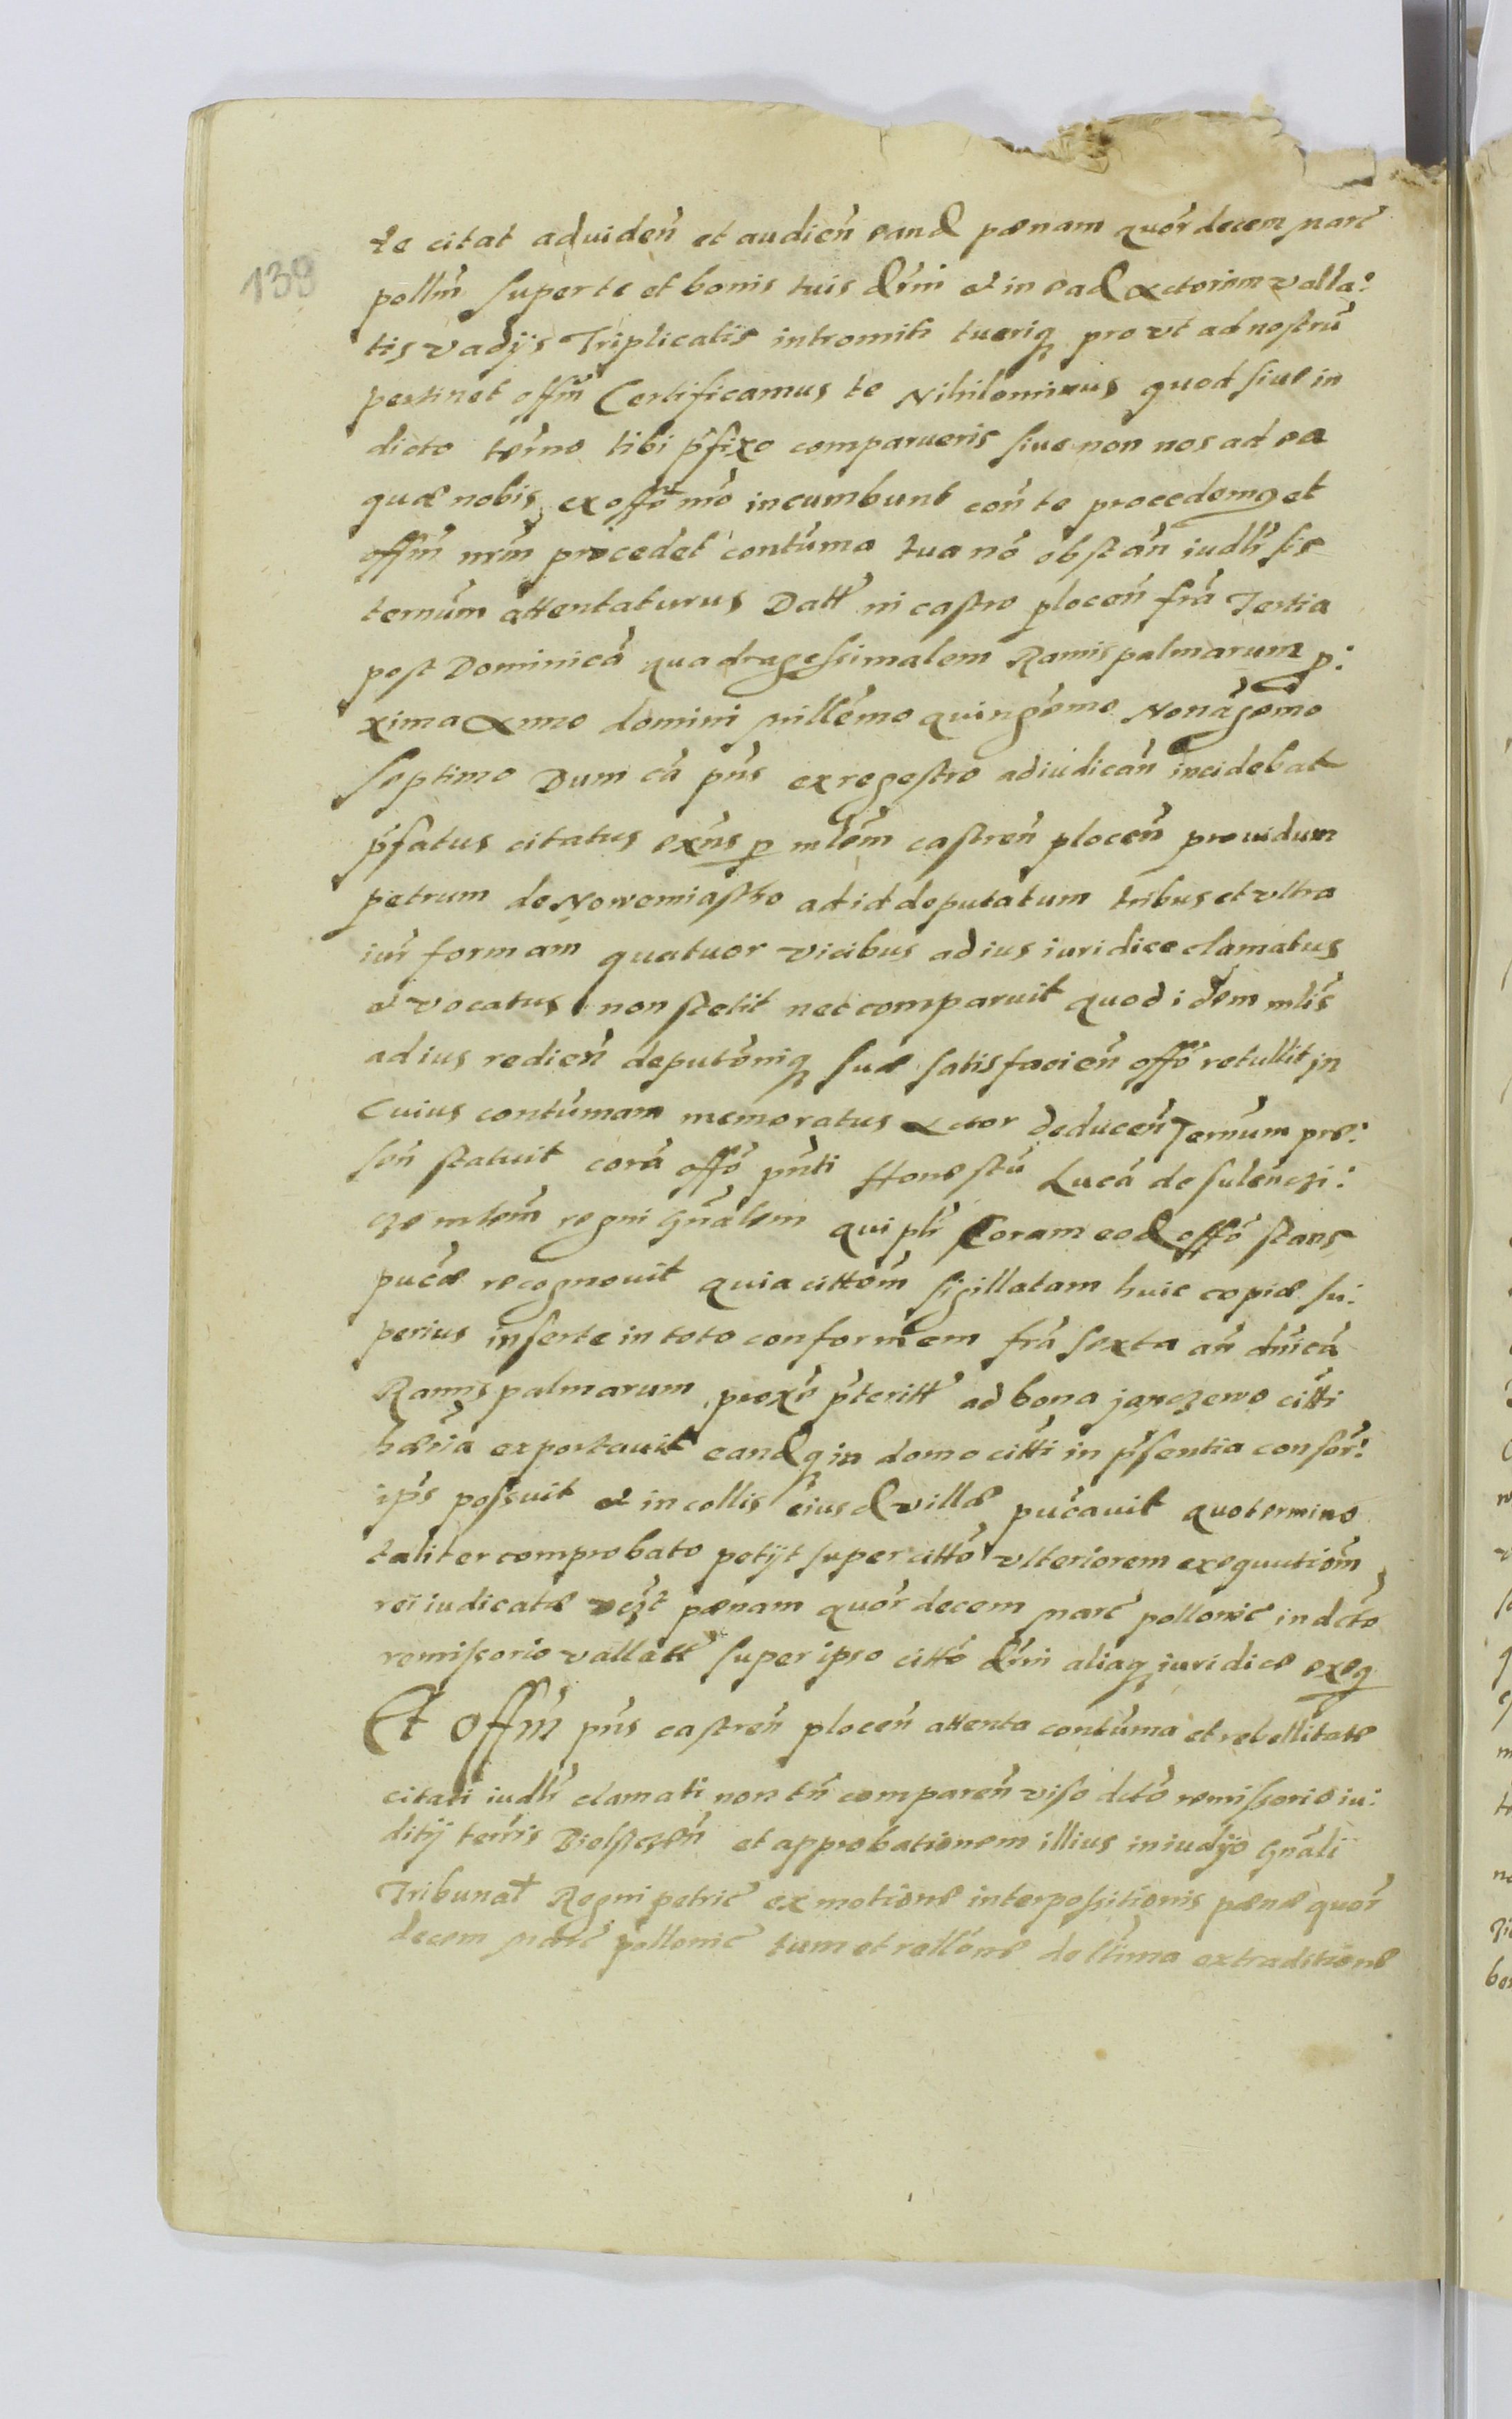 139
te citat ad viden̄ et audien̄ eand pœnam quor̄ decem marc̄
pollīn super te et bonis tuis d̄rni et in ead Actorem valla:
tis vadijs Triplicatis intromiti tueriq prout ad nostrū
pertinet offm̄ Certificamus te Nihilominus quod siue in
dicto ter̄no tibi p̄fixo comparueris siue non nos ad ea
quæ nobis ex offō nr̄o incumbunt con̄ te procedemq et
offm̄ nrm̄ procedet contūma tua nō obstan̄ iudlr̄ sis
ternūm attentaturus Datt̄ in castro plocen̄ fr̄a Tertia
post Dominicā quadragessimalem Ramispalmarum p:
xima Anno domini millēmo quingēmo Nonāgemo
septimo Dum cā pn̄s ex regestro adiudicān incidebat
p̄fatus citatus exn̄s p mlēm castren̄ plocen̄ prouidum
petrum de Nowemiastho ad id deputatum tribus et vltra
iur̄ formam quatuor vicibus ad ius iuridice clamatus
et vocatus non stetit nec comparuit quod idem mlis̄
ad ius redien̄ deputōniq suæ satisfacien̄ offō retullit in
Cuius contūmam memoratus Actor deducen̄ Ternūm præ:
sen̄ statuit corā offō pn̄ti Honestū Lucā de sulēnczi:
cze mlēm regni gnālem qui plr̄ Coram eod offō stans
pucē recognouit quia cittōm sigillatam huic copiæ su:
perius inserte in toto conformem fr̄a sexta an̄ dnīcā
Ramispalmarum proxē p̄teritt̄ ad bona janczewo citti
hær̄ia exportauit eandq in domo citti in p̄sentia consōr:
ip̄s possuit et incollis eiusd villæ pucāuit quo termino
taliter comprobato petijt super cittō vlteriorem exequutiōm
rei iudicatæ vczt̄ pœnam quor̄ decem marc̄ pollonic̄ in dctō
remissorio vallatt̄ super ipso cittō d̄rni aliaq iuridice exeq
Et offm̄ pn̄s castren̄ plocen̄ attenta contūma et rebellitate
citati iudlr̄ clamati non tn̄ comparen̄ viso dctō remissorio iu:
ditij terr̄is Bielsczen̄ et approbationem illius in iudijo gnāli
Tribunal̄ Regni petric̄ ex motione interpossitionis pœnæ quor̄
decem marc̄ pollonic̄ tum et rattōne de ltīma extraditione